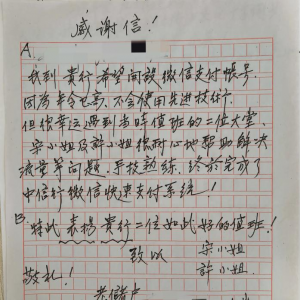 感谢信!
A.
我到 貴行 希望開設微信支付帳号.
因为年令已高, 不会使用先进技術.
但很幸运遇到当時值班的二位大堂.
宋小姐及許小姐很耐心地帮助解决
流量等问题. 手技熟练. 终於完成了
中信行微信快速支付系统!
B: 特此 表揚 貴行二位如此好的值班!
致以 宋小姐
敬礼! 許小姐.
老儲户